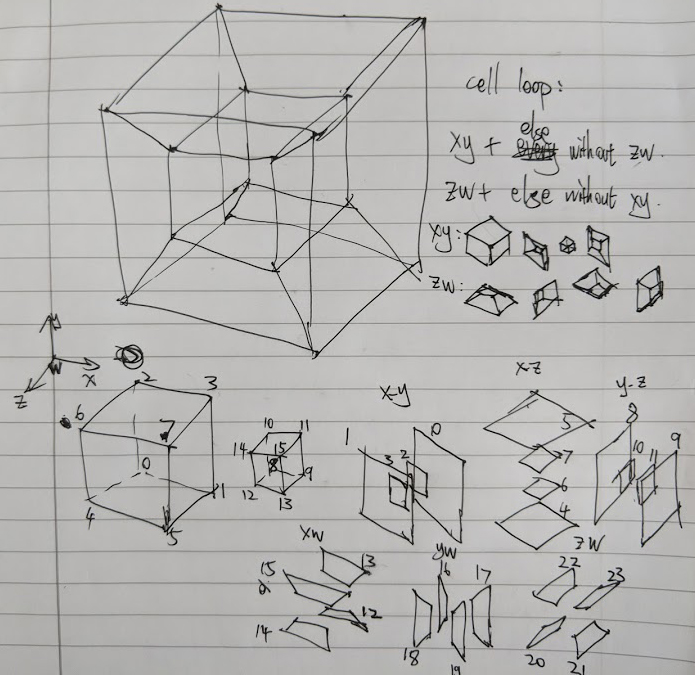 cell loop:
else
xy + without zw.
zw + else without xy.
xy:
zw:
y
w
x
z
2
3
6
7
0
1
4
5
10
11
14
15
8
9
12
13
x-y
1
0
3
2
x-z
5
7
6
4
y-z
8
10
11
9
xw
13
15
12
14
yw
16
17
18
19
zw
22
23
20
21